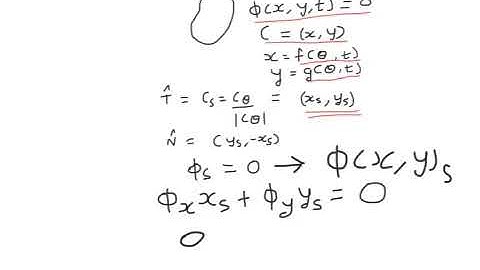 ϕ(x, y, t) = 0
C = (x, y)
x = f(θ, t)
y = g(θ, t)
T̂ = C_s = C_θ / |C_θ| = (x_s, y_s)
N̂ = (y_s, -x_s)
ϕ_s = 0 → ϕ(x, y)_s
ϕ_x x_s + ϕ_y y_s = 0